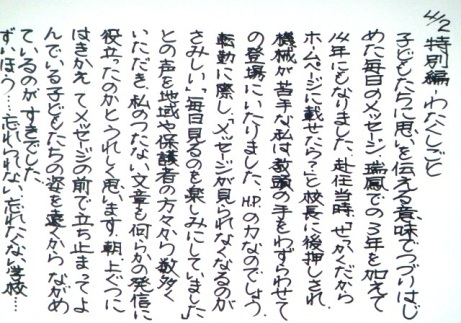 4/2 特別編・わたくしごと
子どもたちに思いを伝える意味でつづりはじ
めた毎日のメッセージ、瑞鳳での3年を加えて
14年にもなりました。赴任当時、“せっかくだから
ホームページに載せたら?”と校長に後押しされ、
機械が苦手な私は教頭の手をわずらわせて
の登場にいたりました。H.P.の力なのでしょう、
転勤に際し、「メッセージが見られなくなるのが
さみしい」「毎日見るのを楽しみにしていました」
との声を地域や保護者の方々から数多く
いただき、私のつたない文章も何らかの発信に
役立ったのかとうれしく思います。朝、上ぐつに
はきかえてメッセージの前で立ち止まってよ
んでいる子どもたちの姿を遠くからながめ
ているのがすきでした。
ずいほう…忘れられない、忘れたくない学校…